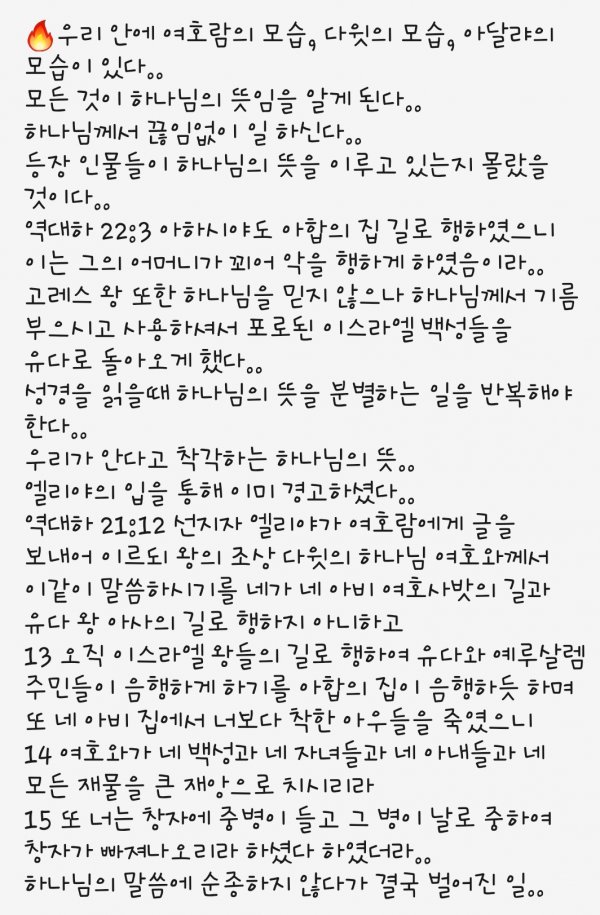 🔥우리 안에 여호람의 모습, 다윗의 모습, 아달랴의
모습이 있다..
모든 것이 하나님의 뜻임을 알게 된다..
하나님께서 끊임없이 일 하신다..
등장 인물들이 하나님의 뜻을 이루고 있는지 몰랐을
것이다..
역대하 22:3 아하시야도 아합의 집 길로 행하였으니
이는 그의 어머니가 꾀어 악을 행하게 하였음이라..
고레스 왕 또한 하나님을 믿지 않으나 하나님께서 기름
부으시고 사용하셔서 포로된 이스라엘 백성들을
유다로 돌아오게 했다..
성경을 읽을때 하나님의 뜻을 분별하는 일을 반복해야
한다..
우리가 안다고 착각하는 하나님의 뜻..
엘리야의 입을 통해 이미 경고하셨다..
역대하 21:12 선지자 엘리야가 여호람에게 글을
보내어 이르되 왕의 조상 다윗의 하나님 여호와께서
이같이 말씀하시기를 네가 네 아비 여호사밧의 길과
유다 왕 아사의 길로 행하지 아니하고
13 오직 이스라엘 왕들의 길로 행하여 유다와 예루살렘
주민들이 음행하게 하기를 아합의 집이 음행하듯 하며
또 네 아비 집에서 너보다 착한 아우들을 죽였으니
14 여호와가 네 백성과 네 자녀들과 네 아내들과 네
모든 재물을 큰 재앙으로 치시리라
15 또 너는 창자에 중병이 들고 그 병이 날로 중하여
창자가 빠져나오리라 하셨다 하였더라..
하나님의 말씀에 순종하지 않다가 결국 벌어진 일..